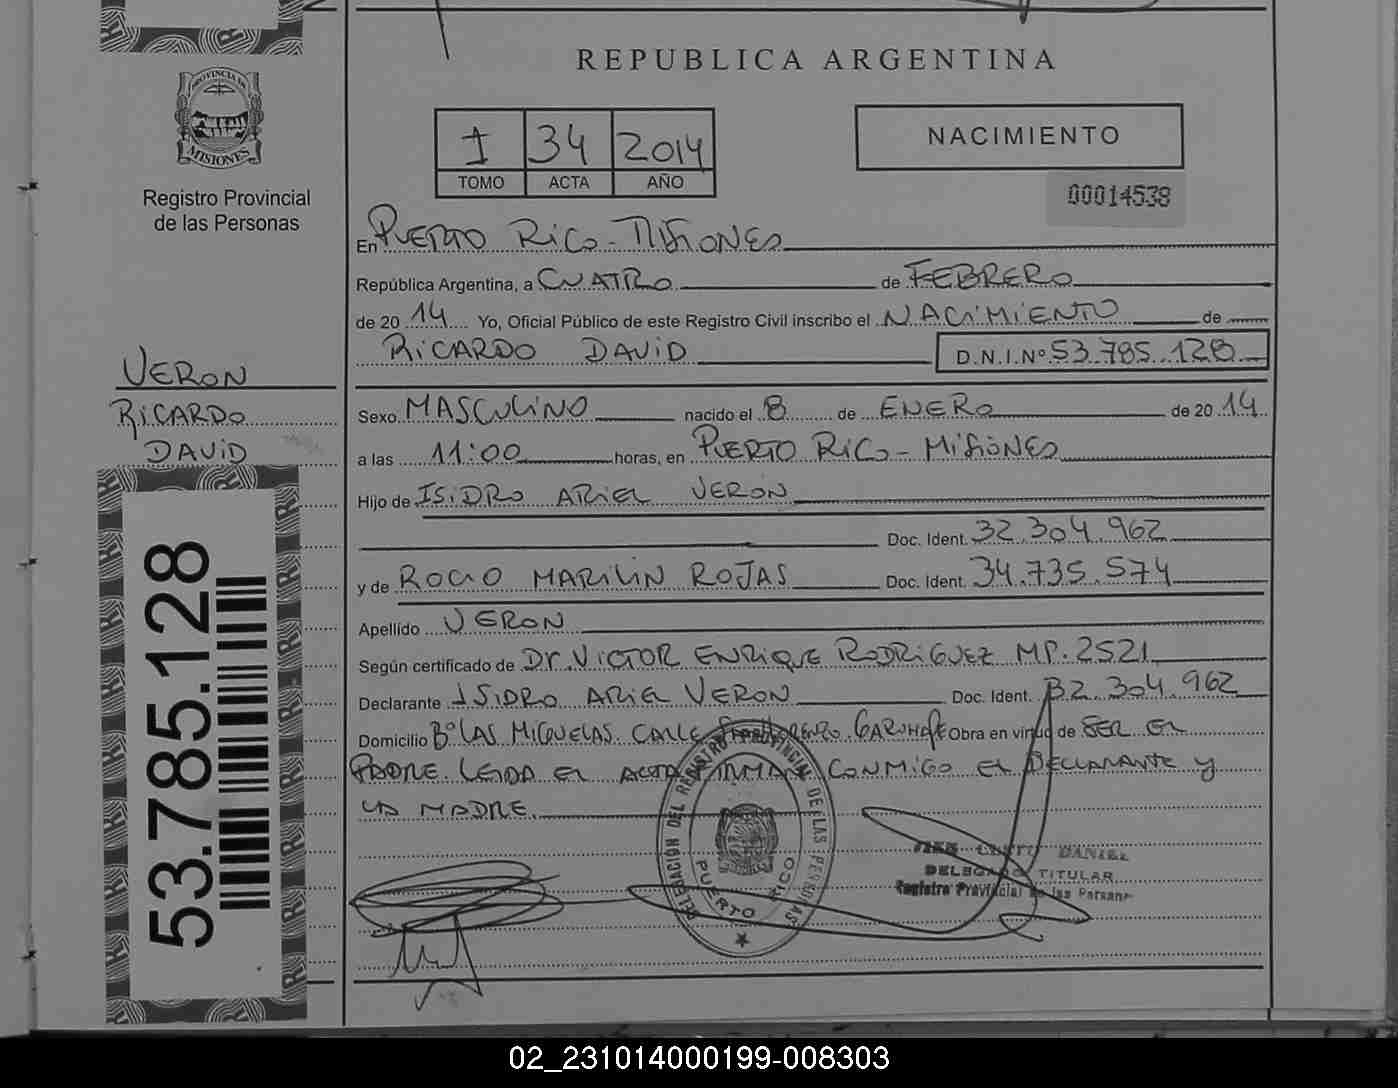 REPUBLICA ARGENTINA
PROVINCIA DE
MISIONES
Registro Provincial
de las Personas
I 34 2014
TOMO ACTA AÑO
NACIMIENTO
00014538
En PUERTO RICO - MISIONES
República Argentina, a CUATRO de FEBRERO
de 20 14 Yo, Oficial Público de este Registro Civil inscribo el NACIMIENTO de
RICARDO DAVID D.N.I.Nº 53.785.128
VERON
RICARDO
DAVID
Sexo MASCULINO nacido el 8 de ENERO de 20 14
a las 11:00 horas, en PUERTO RICO - MISIONES
Hijo de ISIDRO ARIEL VERON
Doc. Ident. 32.304.962
y de ROCIO MARILIN ROJAS Doc. Ident. 34.735.574
Apellido VERON
Según certificado de Dr. VICTOR ENRIQUE RODRIGUEZ MP. 2521
Declarante ISIDRO ARIEL VERON Doc. Ident. 32.304.962
Domicilio Bº LAS MIGUELAS. CALLE Obra en virtud de SER EL
PADRE. LEIDA EL ACTA FIRMAN CONMIGO EL DECLARANTE Y
LA MADRE.
53.785.128
DELEGACIÓN DEL REGISTRO PROVINCIAL DE LAS PERSONAS
PUERTO RICO
DANIEL
DELEGADO TITULAR
Registro Provincial de las Personas
02_231014000199-008303